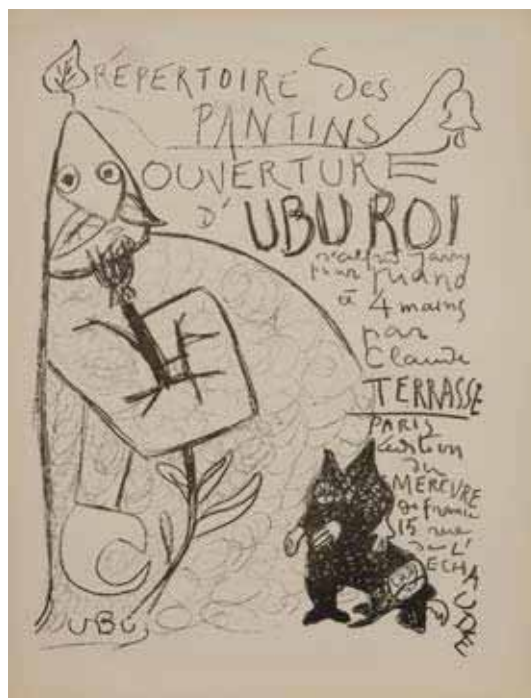 RÉPERTOIRE Des
PANTINS
OUVERTURE
D'UBU ROI
d'alfred Jarry
pour piano
à 4 mains
par
Claude
TERRASSE
PARIS
édition
du
MERCVRE
de france
15 rue
de L'
ECHAUDÉ
UBU